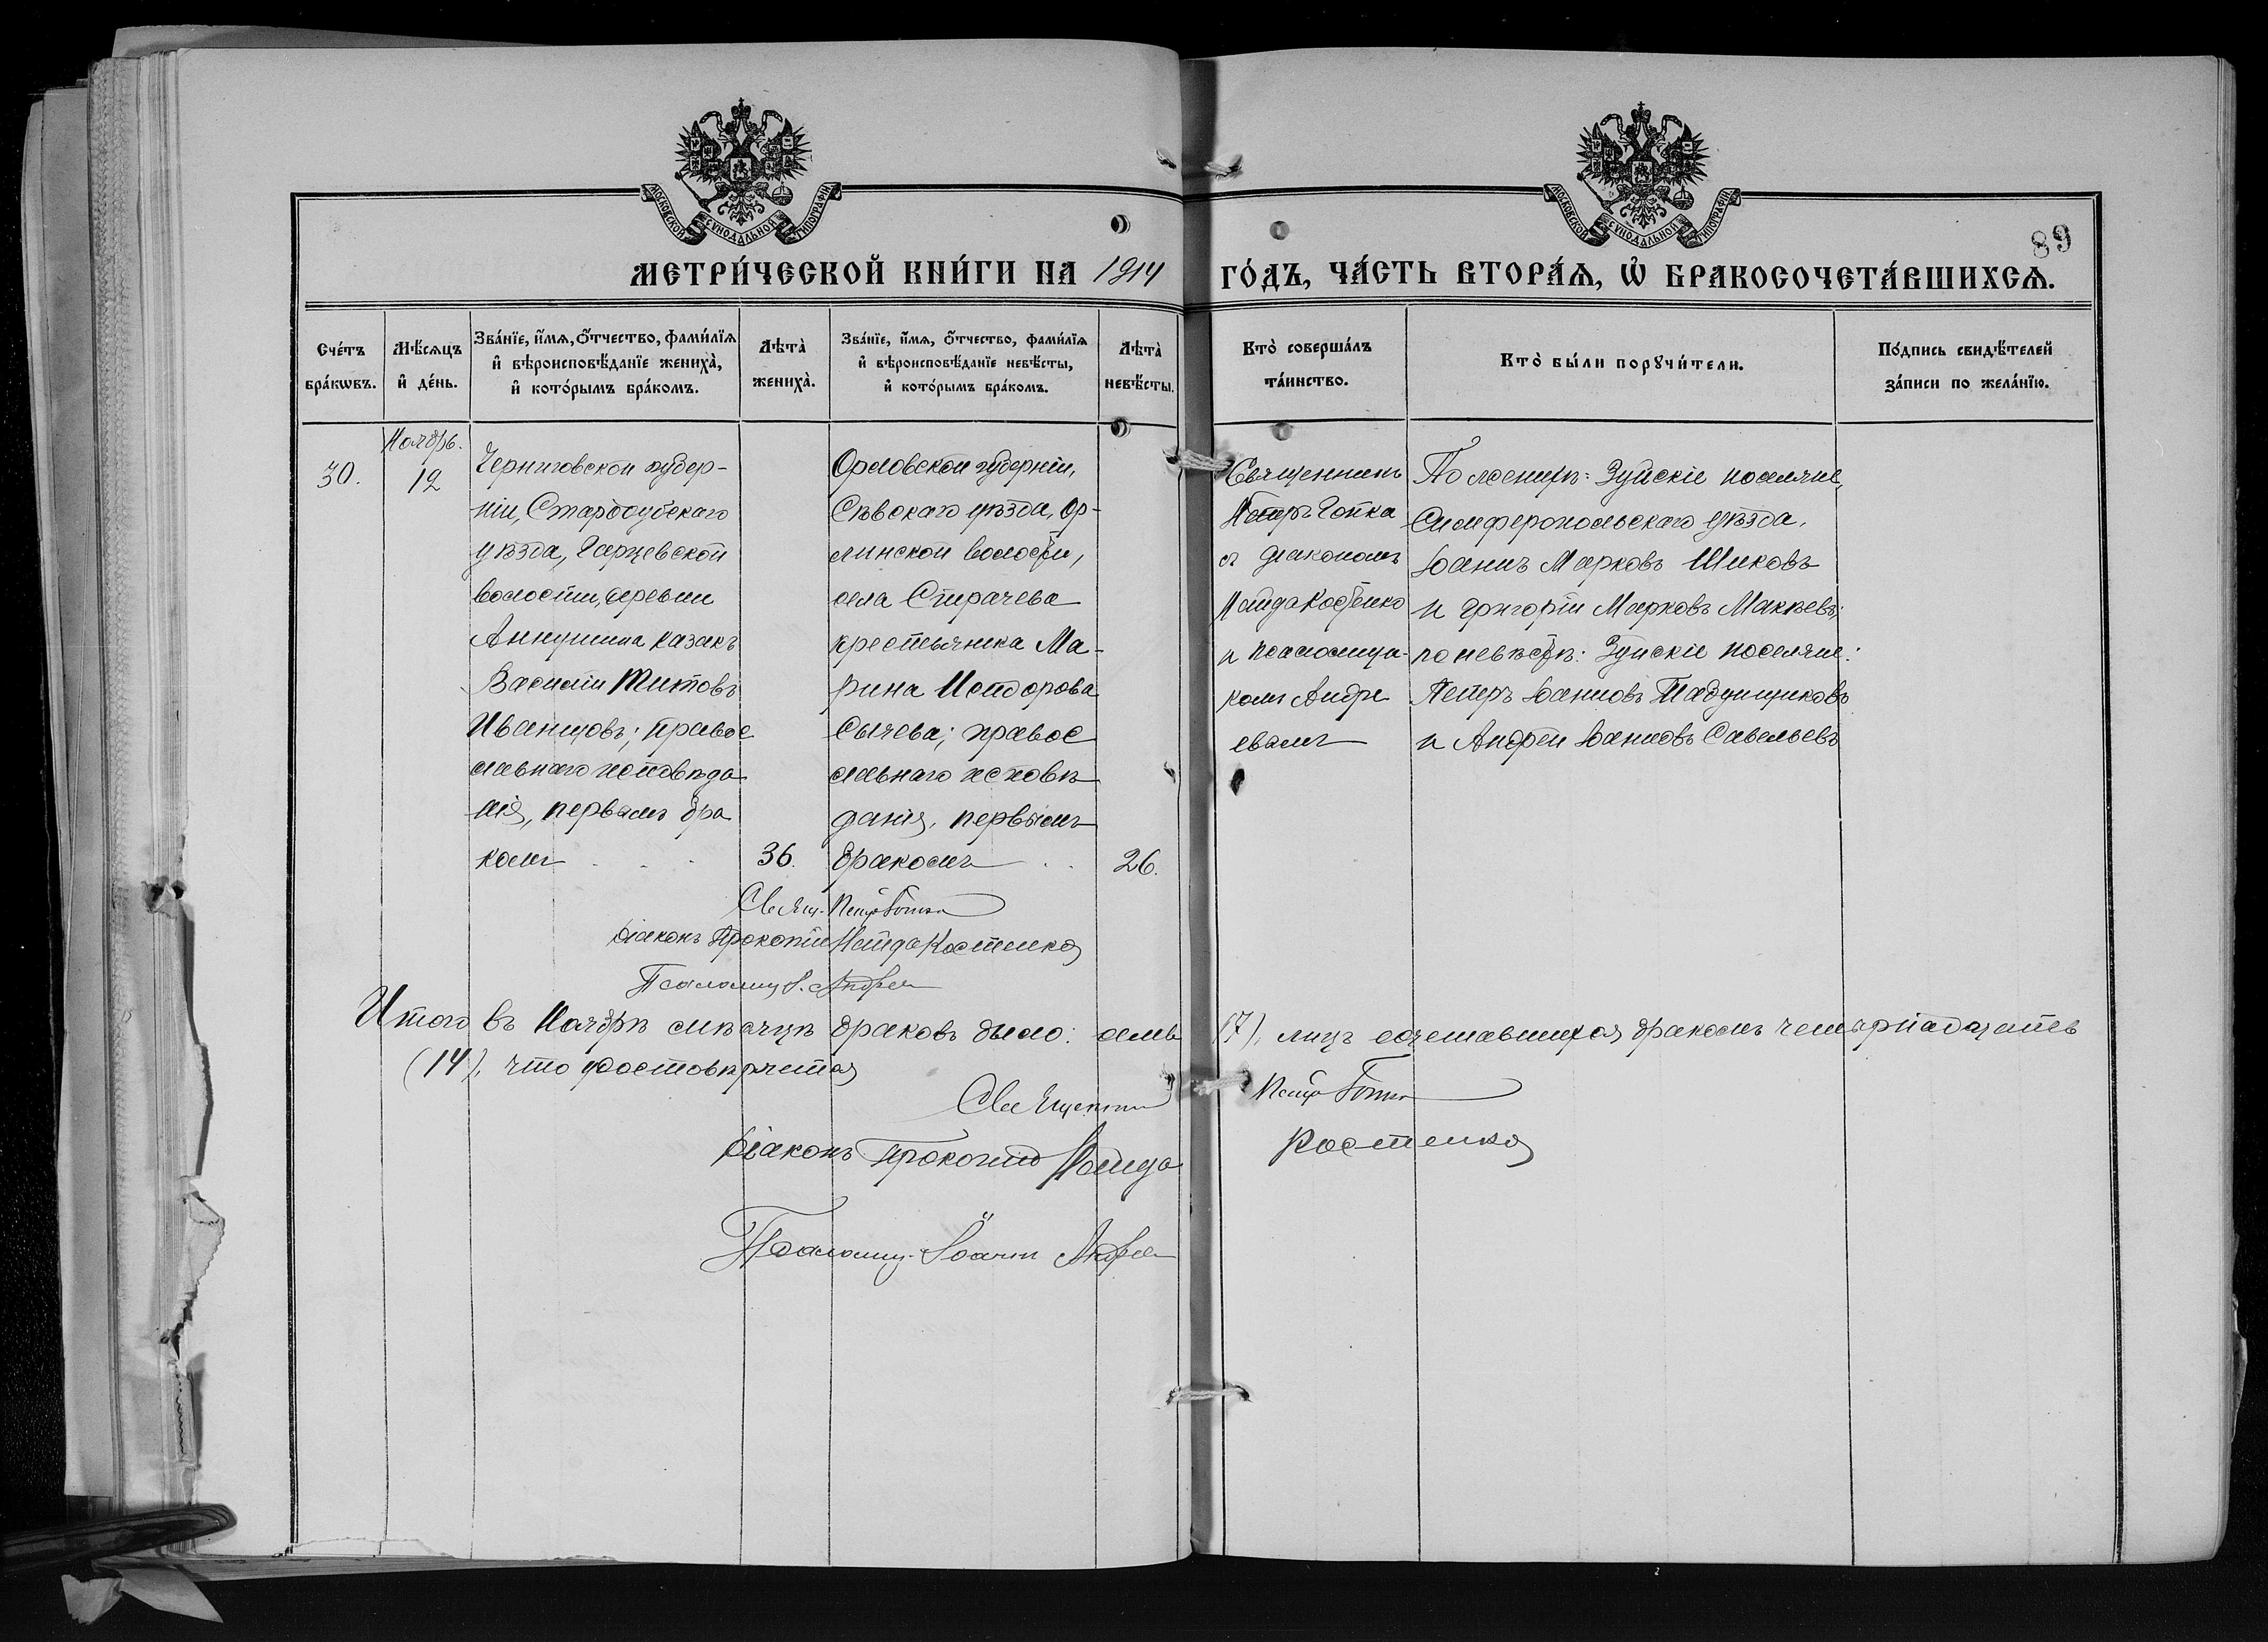 МОСКОВСКОЙ СѴНОДАЛЬНОЙ ТИПОГРАФІИ
МОСКОВСКОЙ СѴНОДАЛЬНОЙ ТИПОГРАФІИ
89
МЕТРИ́ЧЕСКОЙ КНИ́ГИ НА 1914 ГО́ДЪ, ЧА́СТЬ ВТОРА́Ѧ, Ѡ҆ БРАКОСОЧЕТА́ВШИХСѦ.
Сче́тъ бра́кѡвъ.
Мѣ́сѧцъ и҆ де́нь.
Зва́нїе, и҆́мѧ, ѻ҆́тчество, фами́лїѧ
и҆ вѣроисповѣ́данїе жениха̀,
и҆ кото́рымъ бра́комъ.
Лѣта̀ жениха̀.
Зва́нїе, и҆́мѧ, ѻ҆́тчество, фами́лїѧ
и҆ вѣроисповѣ́данїе невѣ́сты,
и҆ кото́рымъ бра́комъ.
Лѣта̀ невѣ́сты.
Кто̀ соверша́лъ та́инство.
Кто̀ бы́ли порꙋчи́тели.
По́дпись свидѣ́телей
за́писи по жела́нїю.
30.
Ноябрь.
12
Черниговской губер-
ніи, Стародубскаго
уѣзда, Гарцевской
волости, деревни
Аннушина казакъ
Василій Титовъ
Иванцовъ; право
славнаго исповѣда
нія, первымъ бра
комъ
36.
Орловской губерніи,
Сѣвскаго уѣзда, Ор-
линской волости,
села Страчева
крестьянка Ма-
рина Исидорова
Сычева; право
славнаго исповѣ
данія, первымъ
бракомъ
26.
Священникъ
Петръ Готка
съ діакономъ
Найда Костенко
и псаломщи-
комъ Андре
евымъ
По женихѣ: Зуйскіе поселяне,
Симферопольскаго уѣзда,
Іоаннъ Марковъ Шиковъ
и Григорій Марковъ Макѣевъ;
по невѣстѣ: Зуйскіе поселяне:
Петръ Іоанновъ Табунщиковъ
и Андрей Іоанновъ Савельевъ
Свящ. Петръ Готка
Діаконъ Прокопій Найда Костенко
Псаломщ. І. Андреев
Итого въ Ноябрѣ мѣсяцѣ браковъ было: семь (7), лицъ сочетавшихся бракомъ четырнадцать
(14), что удостовѣряется
Священникъ Петръ Готка
Діаконъ Прокопій Найда Костенко
Псаломщ. Іоаннъ Андреев